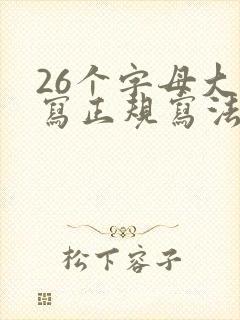 26个字母大
寫正規寫法
松下容子